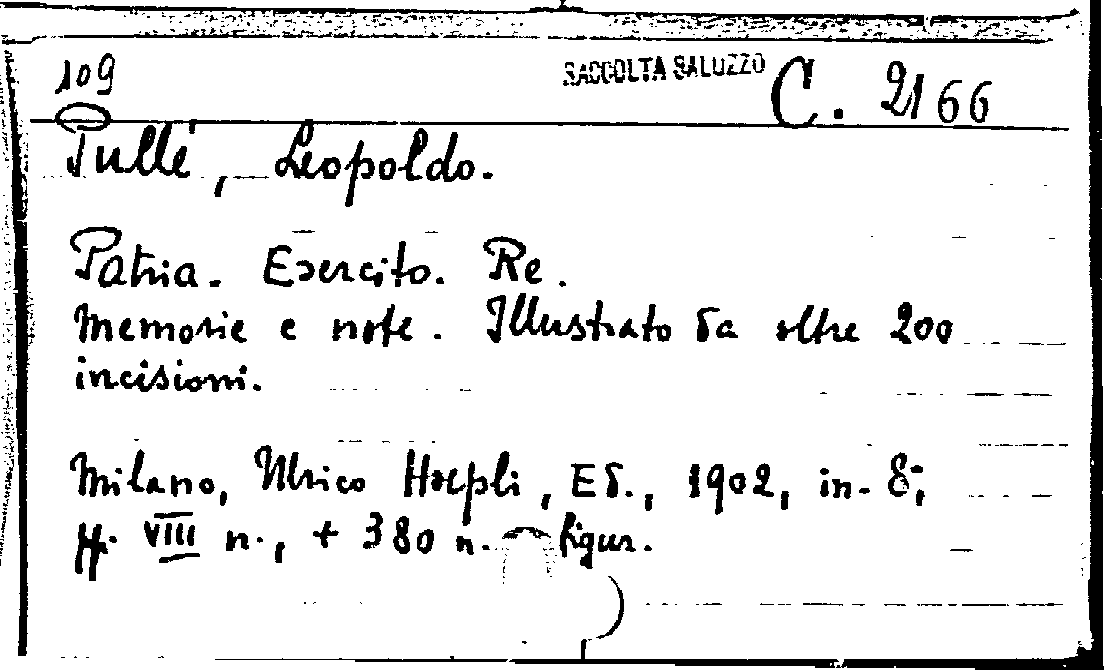 109
RACCOLTA SALUZZO
C. 2166
Pullé, Leopoldo.
Patria. Esercito. Re.
Memorie e note. Illustrato da oltre 200
incisioni.
Milano, Ulrico Hoepli, Ed., 1902, in-8°;
pp. VIII n., + 380 n. figur.